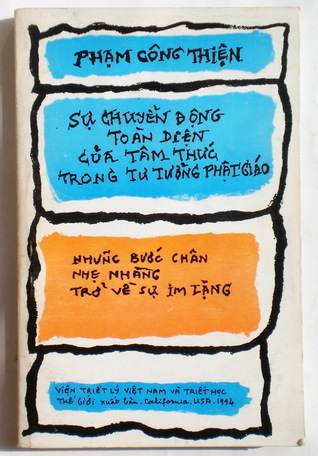 PHẠM CÔNG THIỆN
SỰ CHUYỂN ĐỘNG
TOÀN DIỆN
CỦA TÂM THỨC
TRONG TƯ TƯỞNG PHẬT GIÁO
NHỮNG BƯỚC CHÂN
NHẸ NHÀNG
TRỞ VỀ SỰ IM LẶNG
VIỆN TRIẾT LÝ VIỆT NAM VÀ TRIẾT HỌC
THẾ GIỚI xuất bản. California. USA. 1994